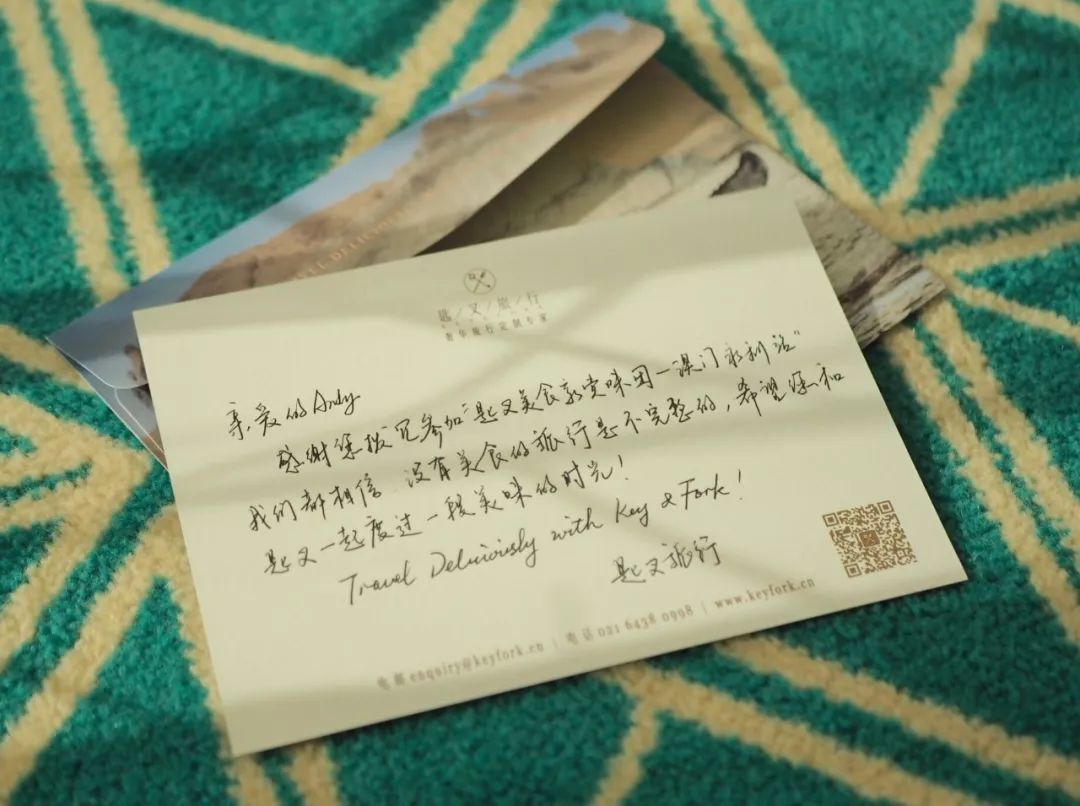 VEL DELICIOU
匙/叉/旅/行
奢华旅行定制专家
亲爱的Andy
感谢您拨冗参加"匙叉美食家赏味团—澳门永利站"
我们都相信,没有美食的旅行是不完整的,希望您和
匙叉一起度过一段美味的时光!
Travel Deliciously with Key & Fork!
匙叉旅行
电邮 enquiry@keyfork.cn | 电话 021 6438 0998 | www.keyfork.cn